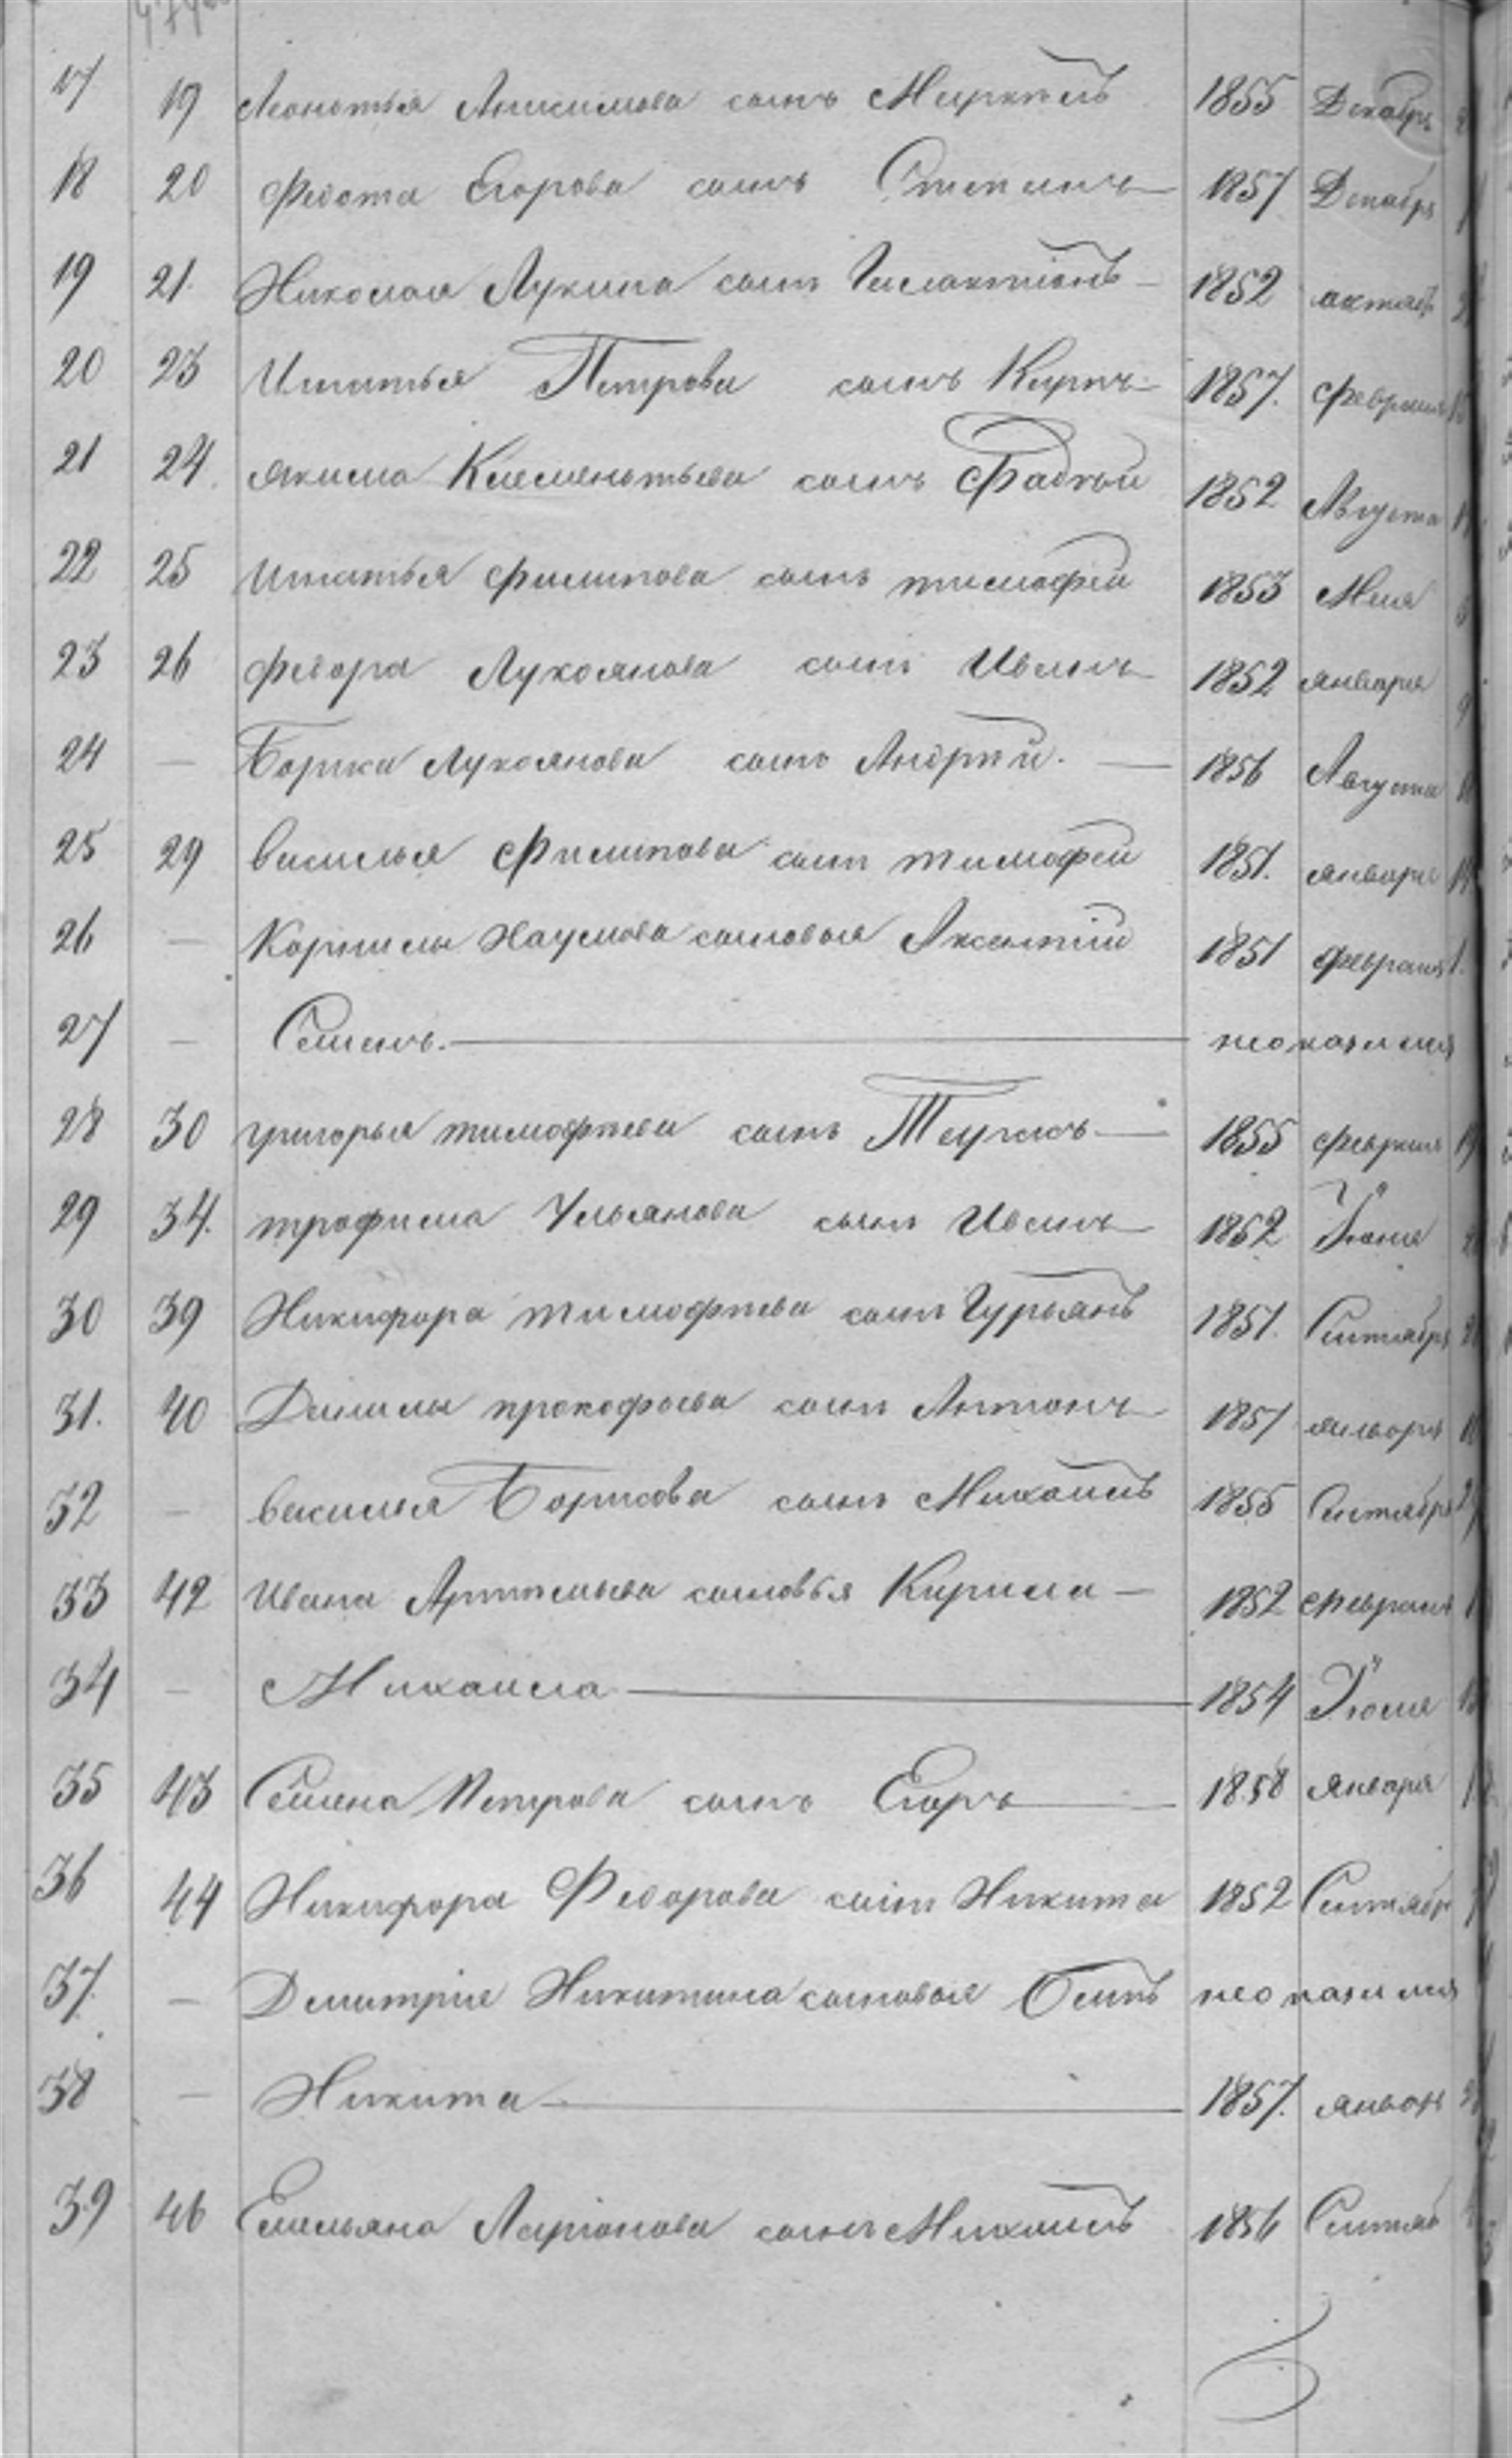 17 19 Леонтья Анисимова сынъ Маркелъ 1855 Декабрь
18 20 Федота Егорова сынъ Степанъ 1857 Декабря
19 21. Николая Лукина сынъ Галактіонъ 1852 октяб
20 23 Игнатья Петрова сынъ Карпъ 1857. февраля
21 24. якима Клементьева сынъ Фадѣй 1852 Августа
22 25 Игнатья филипова сынъ тимофей 1853 Мая
23 26 федора Лукоянова сынъ Иванъ 1852 января
24 — Бориса Лукоянова сынъ Андрѣй. 1856 Августа
25 29 василья Филипова сынъ тимофей 1851. января
26 — Корнилы Наумова сыновья Аксентій 1851 февраля 1.
27 — Семенъ. неоказался
28 30 григорья тимофѣева сынъ Тарасъ 1855 февраля
29 34. трофима Ульянова сынъ Иванъ 1852 Іюня
30 39 Никифора тимофѣева сынъ Гурьянъ 1851. Сентябрь
31. 40 Данилы прокофьева сынъ Антонъ 1851 январь
32 — василья Борисова сынъ Михаилъ 1855 Сентябрь
33 42 Ивана Артемьева сыновья Кирила 1852 февраля
34 — Михаила 1854 Іюля
35 43 Семена Петрова сынъ Егоръ 1858 января
36 44 Никифора Федорова сынъ Никита 1852 Сентябр
37. — Дмитрія Никитина сыновья Осипъ неоказался
38 — Никита 1857. январь
39 46 Емельяна Ларіонова сынъ Михаилъ 1856 Сентяб